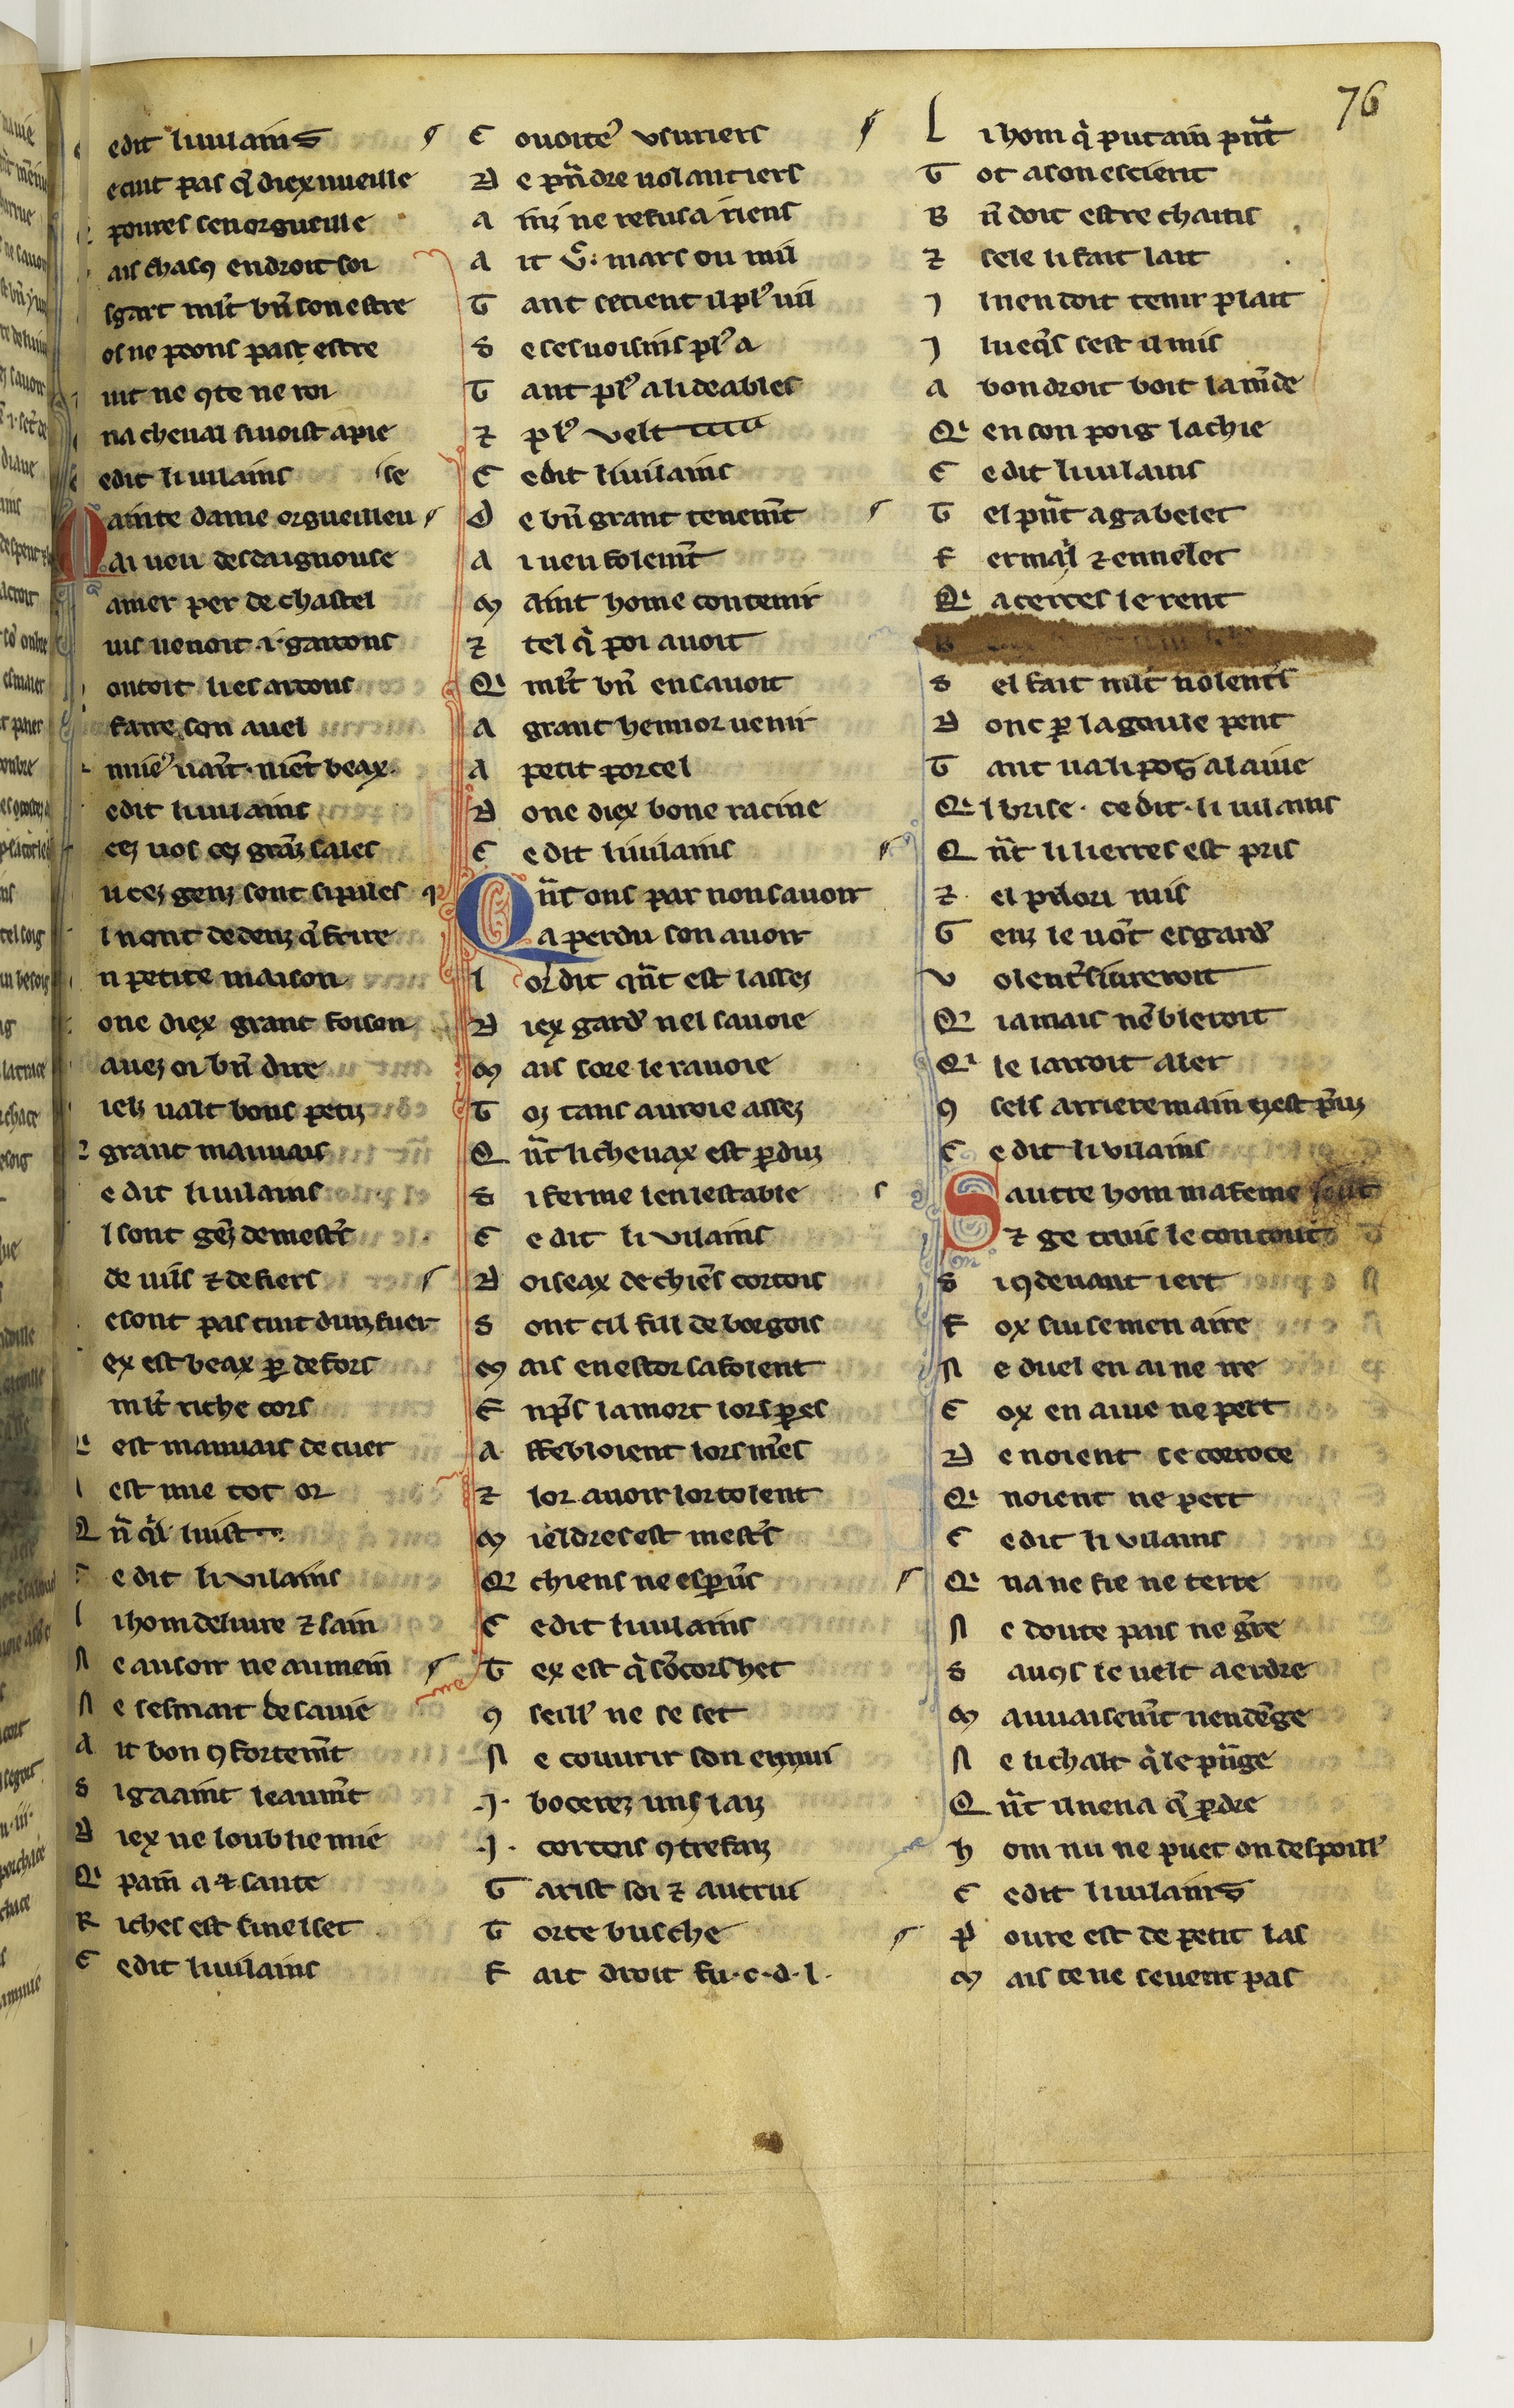 76
edit li uilains
ecuit pas q̃ diex uueille
poures senorgueille
ais chascꝯ endroit soi
sgart ml't bn̄ son estre
os ne poons pas estre
uit ne ꝯte ne roi
na cheual si uoist a pie
edit li uilains se
Mainte dame orgueilleu
Ai ueu desdaignouse
amer per de chastel
uis uenoit .i. garcons
ontoit li es arcons
faire son auel
edit li uilains
cez uos cez grãz sales
u cez genz sont si pales
l nont dedenz q̃ frire
n petite maison
one diex grant foison
auez oi bn̄ dire
ielz ualt bons petiz
grant mauuais
e dit li uilains
l sont gẽz de mest's
de uils ⁊ de fiers
e sont pas tuit dun fuer
ex est beax ꝑ defors
ml't riche cors
est mauuais de cuer
est mie tot or
Q n̄ q̃l luist
C e dit li vilains
L i hom deliure ⁊ sain
N e au soir ne au mein
N e sesmait de sa uie
A it bon ꝯfortem̃t
S i gaaint leaum̃t
D iex ne loublie mie
Qi pain a ⁊ sante
R iches est si nel set
C e dit li uilains
C ouoite' vsuriers
D e pñdre uolantiers
A niz ne refusa riens
A it .c. mars ou mil
T ant se cient il pl' uil
D e ses uoisins pl' a
T ant pl' a li deables
⁊ pl' velt
C e dit li uilains
D e bn̄ grant tenem̃t
A i ueu folem̃t
M aint home contenir
⁊ tel q̇ poi auoit
Qi ml't bn̄ en sauoit
A grant hennor uenir
A petit porcel
D one diex bone racine
C e dit li uilains
Qñt ons par non sauoir
a perdu son auoir
L or dit qñt est lassez
D iex gard' nel sauoie
M ais sore le rauoie
T oz tans auroie assez
Q ñt li cheuax est ꝑduz
S i ferme len lestable
C e dit li vilains
D oiseax de chiẽs cortois
S ont cil fill de borgois
M ais en estor safoient
E npͥs la mort lors ꝑes
A ffebloient lors m̃es
⁊ lor auoir lor tolent
M ieldres est mest's
Qi chiens ne esꝑũs
C e dit li uilains
T ex est q̇ sõ cors het
ꝯ seill' ne se set
N e couurir son ennui
.I. bocerez uns laiz
.I. cortois ꝯtrefaiz
G arist soi ⁊ autrui
T orte busche
F ait droit fu .c.d.l.
L i hom q̇ putain pñt
T ot a son escient
B n̄ doit estre chaitis
⁊ sele li fait lait
I l nen doit tenir plait
I luecq̃s sest il mis
A bon droit boit lam̃de
Qi en son poig la chie
C e dit li uilains
T el pñt agabelet
F ermail ⁊ ennelet
Qi a certes le rent
S el fait ml't uolent's
D onc ꝑ la goule pent
T ant ua li poz a laiue
Qil brise. ce dit. li uilains
Q ñt li lierres est pris
⁊ el pilori mis
G enz le uõt esgard'
V olent's iureroit
Qi iamais nẽbleroit
Qi le lairoit aler
ꝯ sels arriere main nest p̃uz
C e dit li vilains
Sautre hom ma feme
⁊ ge truis le con tout
S i ꝯ deuant iert
F ox sui se men aire
N e duel en ai ne ire
C ox en aiue ne pert
D e noient se corroce
Qi noient ne pert
C e dit li vilains
Qi na ne fie ne terre
N e doute pais ne g̃re
S aucꝯs le uelt aerdre
M auuaisem̃t nen dẽge
N e li chalt q̇ le pñge
Q ñt il nena q̃ ꝑdre
H om nu ne puet on despoill'
C e dit li uilains
P oure est de petit las
M ais ce ne seuent pas